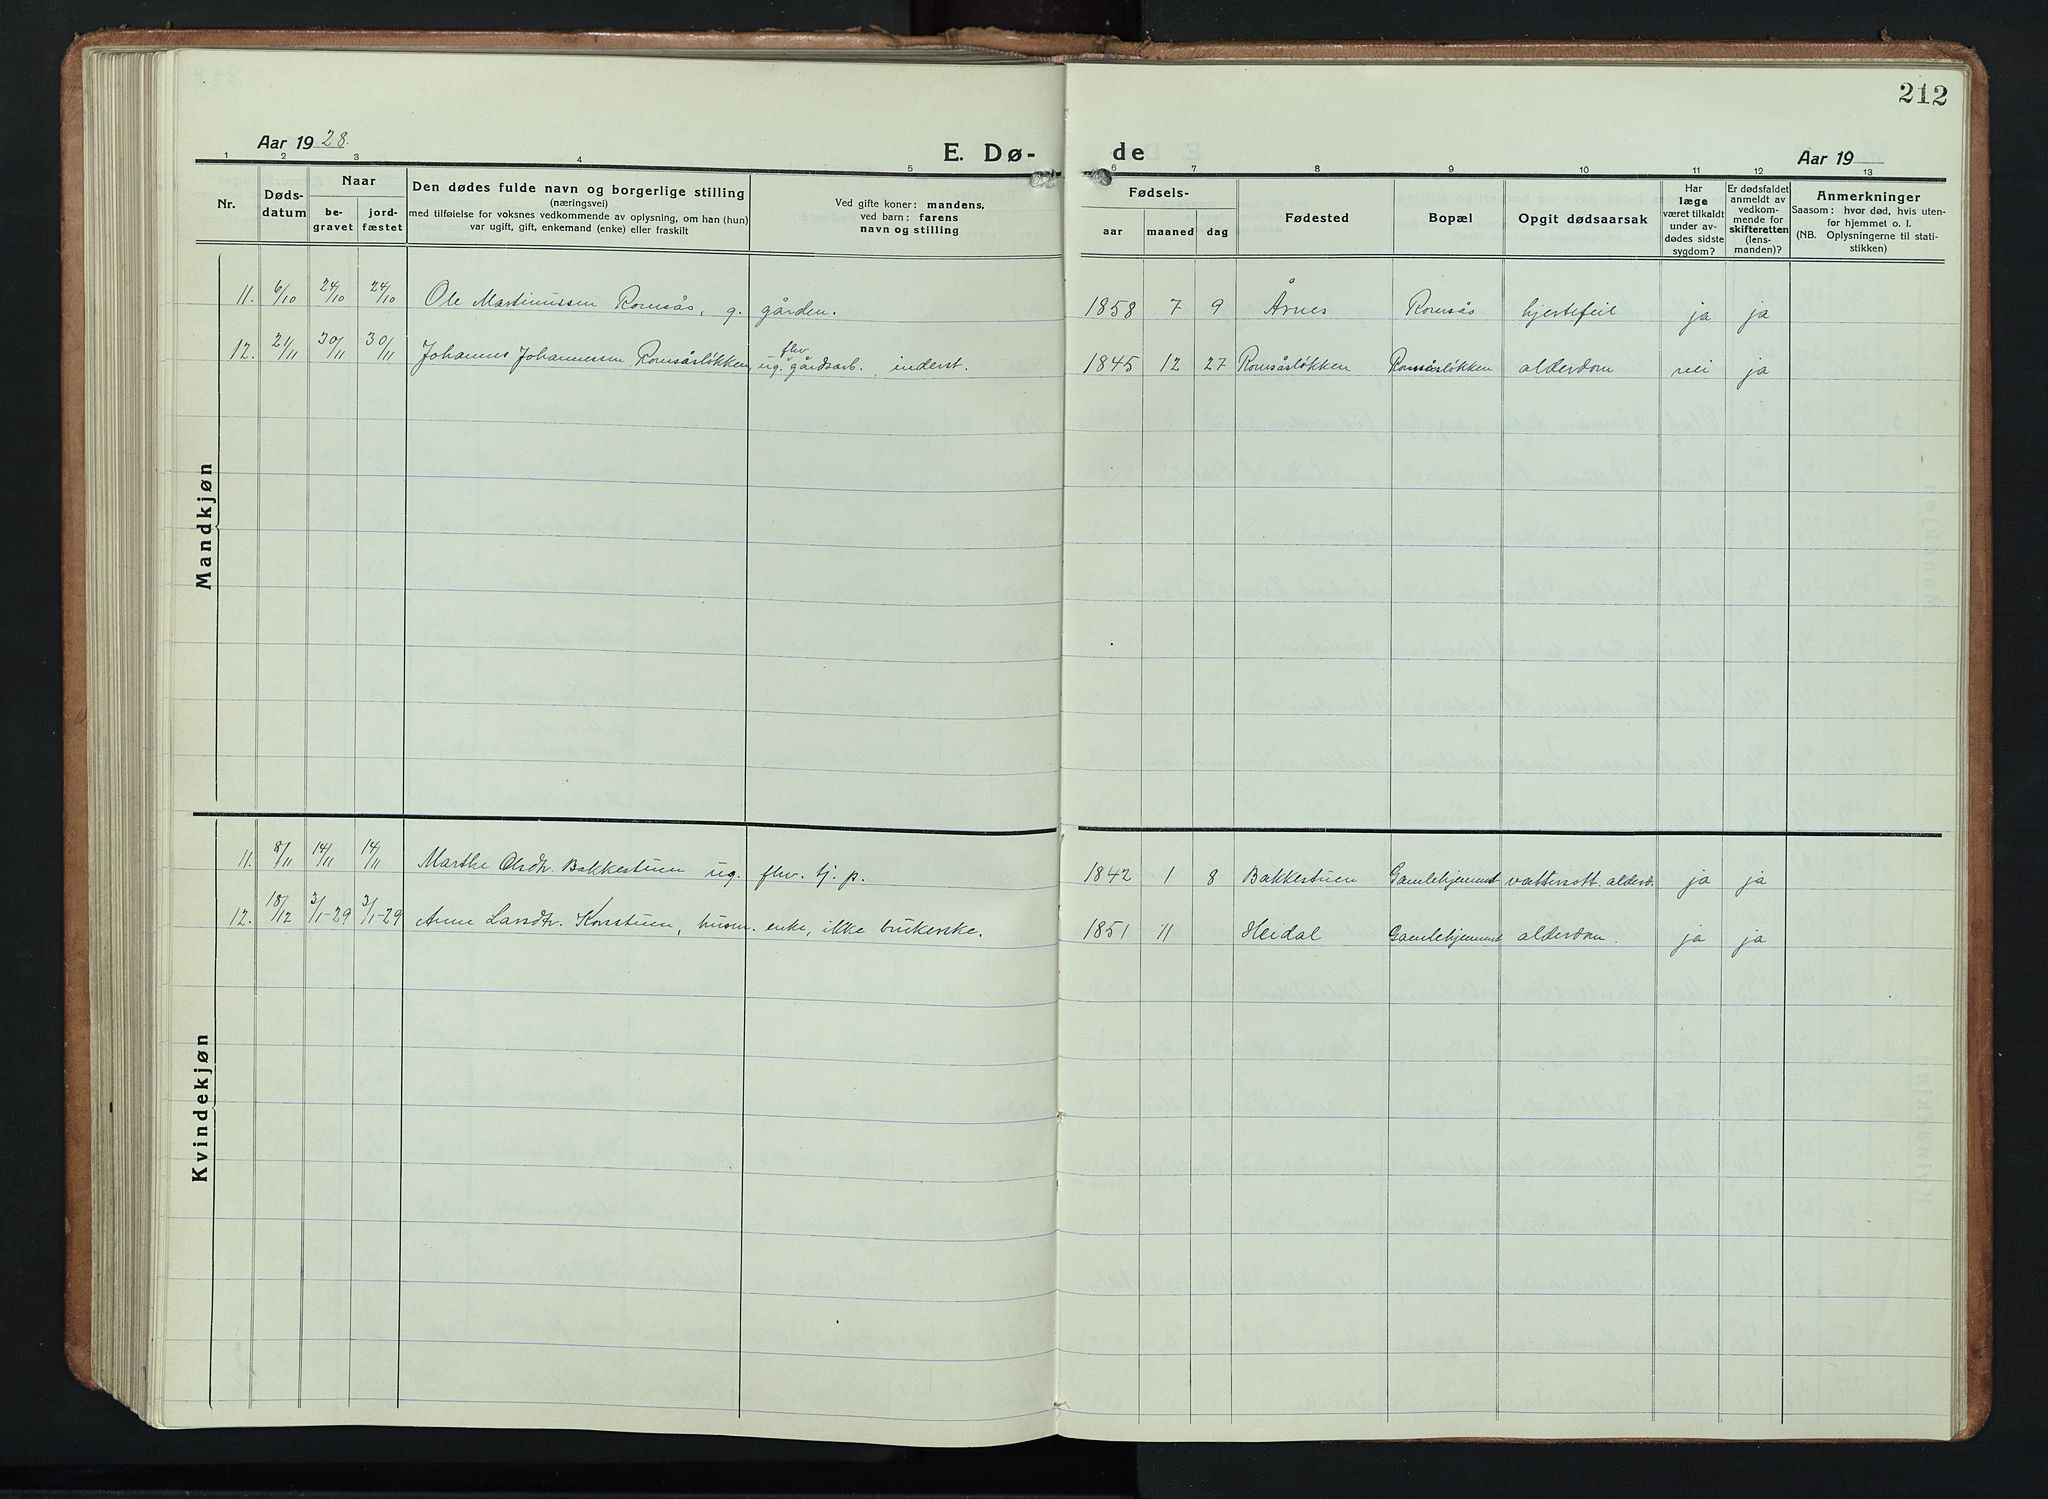 212
Aar 1928.
E. Dø-
de
Aar 19
1 2 3 4 5 6 7 8 9 10 11 12 13
Nr.
Døds-
datum
Naar
be-
gravet
jord-
fæstet
Den dødes fulde navn og borgerlige stilling
(næringsvei)
med tilføielse for voksnes vedkommende av oplysning, om han (hun)
var ugift, gift, enkemand (enke) eller fraskilt
Ved gifte koner: mandens,
ved barn: farens
navn og stilling
Fødsels-
aar maaned dag
Fødested
Bopæl
Opgit dødsaarsak
Har
læge
været tilkaldt
under av-
dødes sidste
sygdom?
Er dødsfaldet
anmeldt av
vedkom-
mende for
skifteretten
(lens-
manden)?
Anmerkninger
Saasom: hvor død, hvis uten-
for hjemmet o. l.
(NB. Oplysningerne til stati-
stikken)
Mandkjøn
11. 6/10 24/10 24/10 Ole Martinussen Romsås, g. gården. 1858 7 9 Årnes Romsås hjertefeil ja ja
12. 21/11 30/11 30/11 Johannes Johannessen Romsåsløkken, ug. fhv gårdsarb., inderst. 1845 12 27 Romsåsløkken Romsåsløkken alderdom nei ja
Kvindekjøn
11. 8/11 14/11 14/11 Marthe Olsdtr. Bakkestuen ug. fhv. tj. p. 1842 1 8 Bakkestuen Gamlehjemmet vattersott. alderd. ja ja
12. 18/12 3/1-29 3/1-29 Anne Larsdtr. Korsstuen, husm. enke, ikke brukerske. 1851 11 Heidal Gamlehjemmet alderdom. ja ja